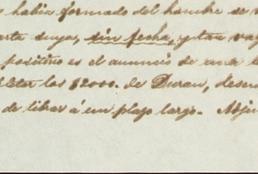 habia formado del hombre de
suya, sin fecha, y tan
positivo es el anuncio de una
los $2000. de Duran,
de librar á un plazo largo.